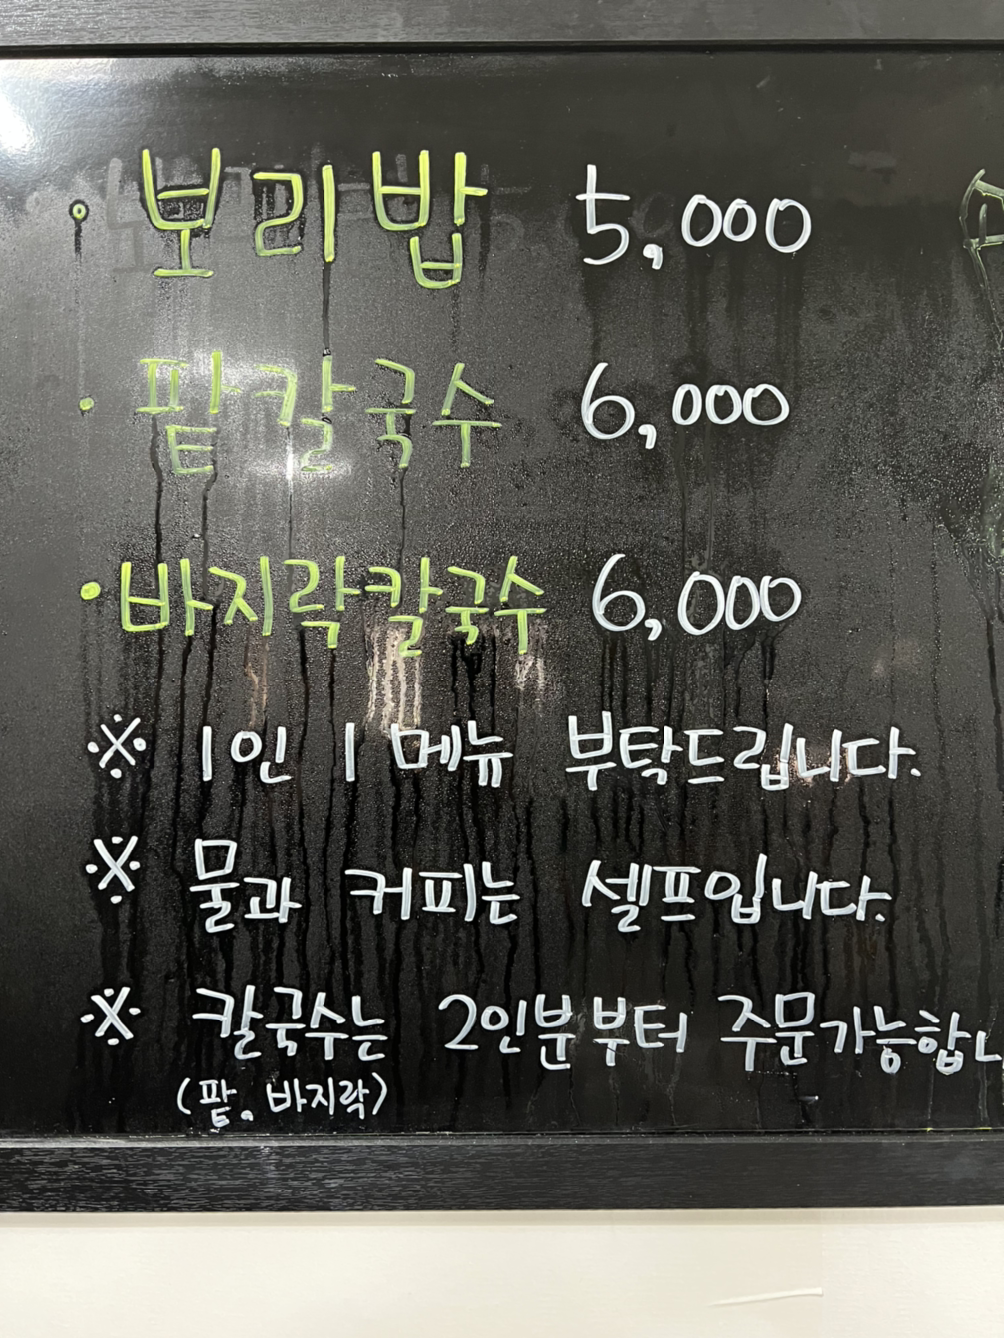 • 보리밥 5,000
• 팥칼국수 6,000
• 바지락칼국수 6,000
※ 1인 1메뉴 부탁드립니다.
※ 물과 커피는 셀프입니다.
※ 칼국수는 2인분부터 주문가능합니
(팥, 바지락)